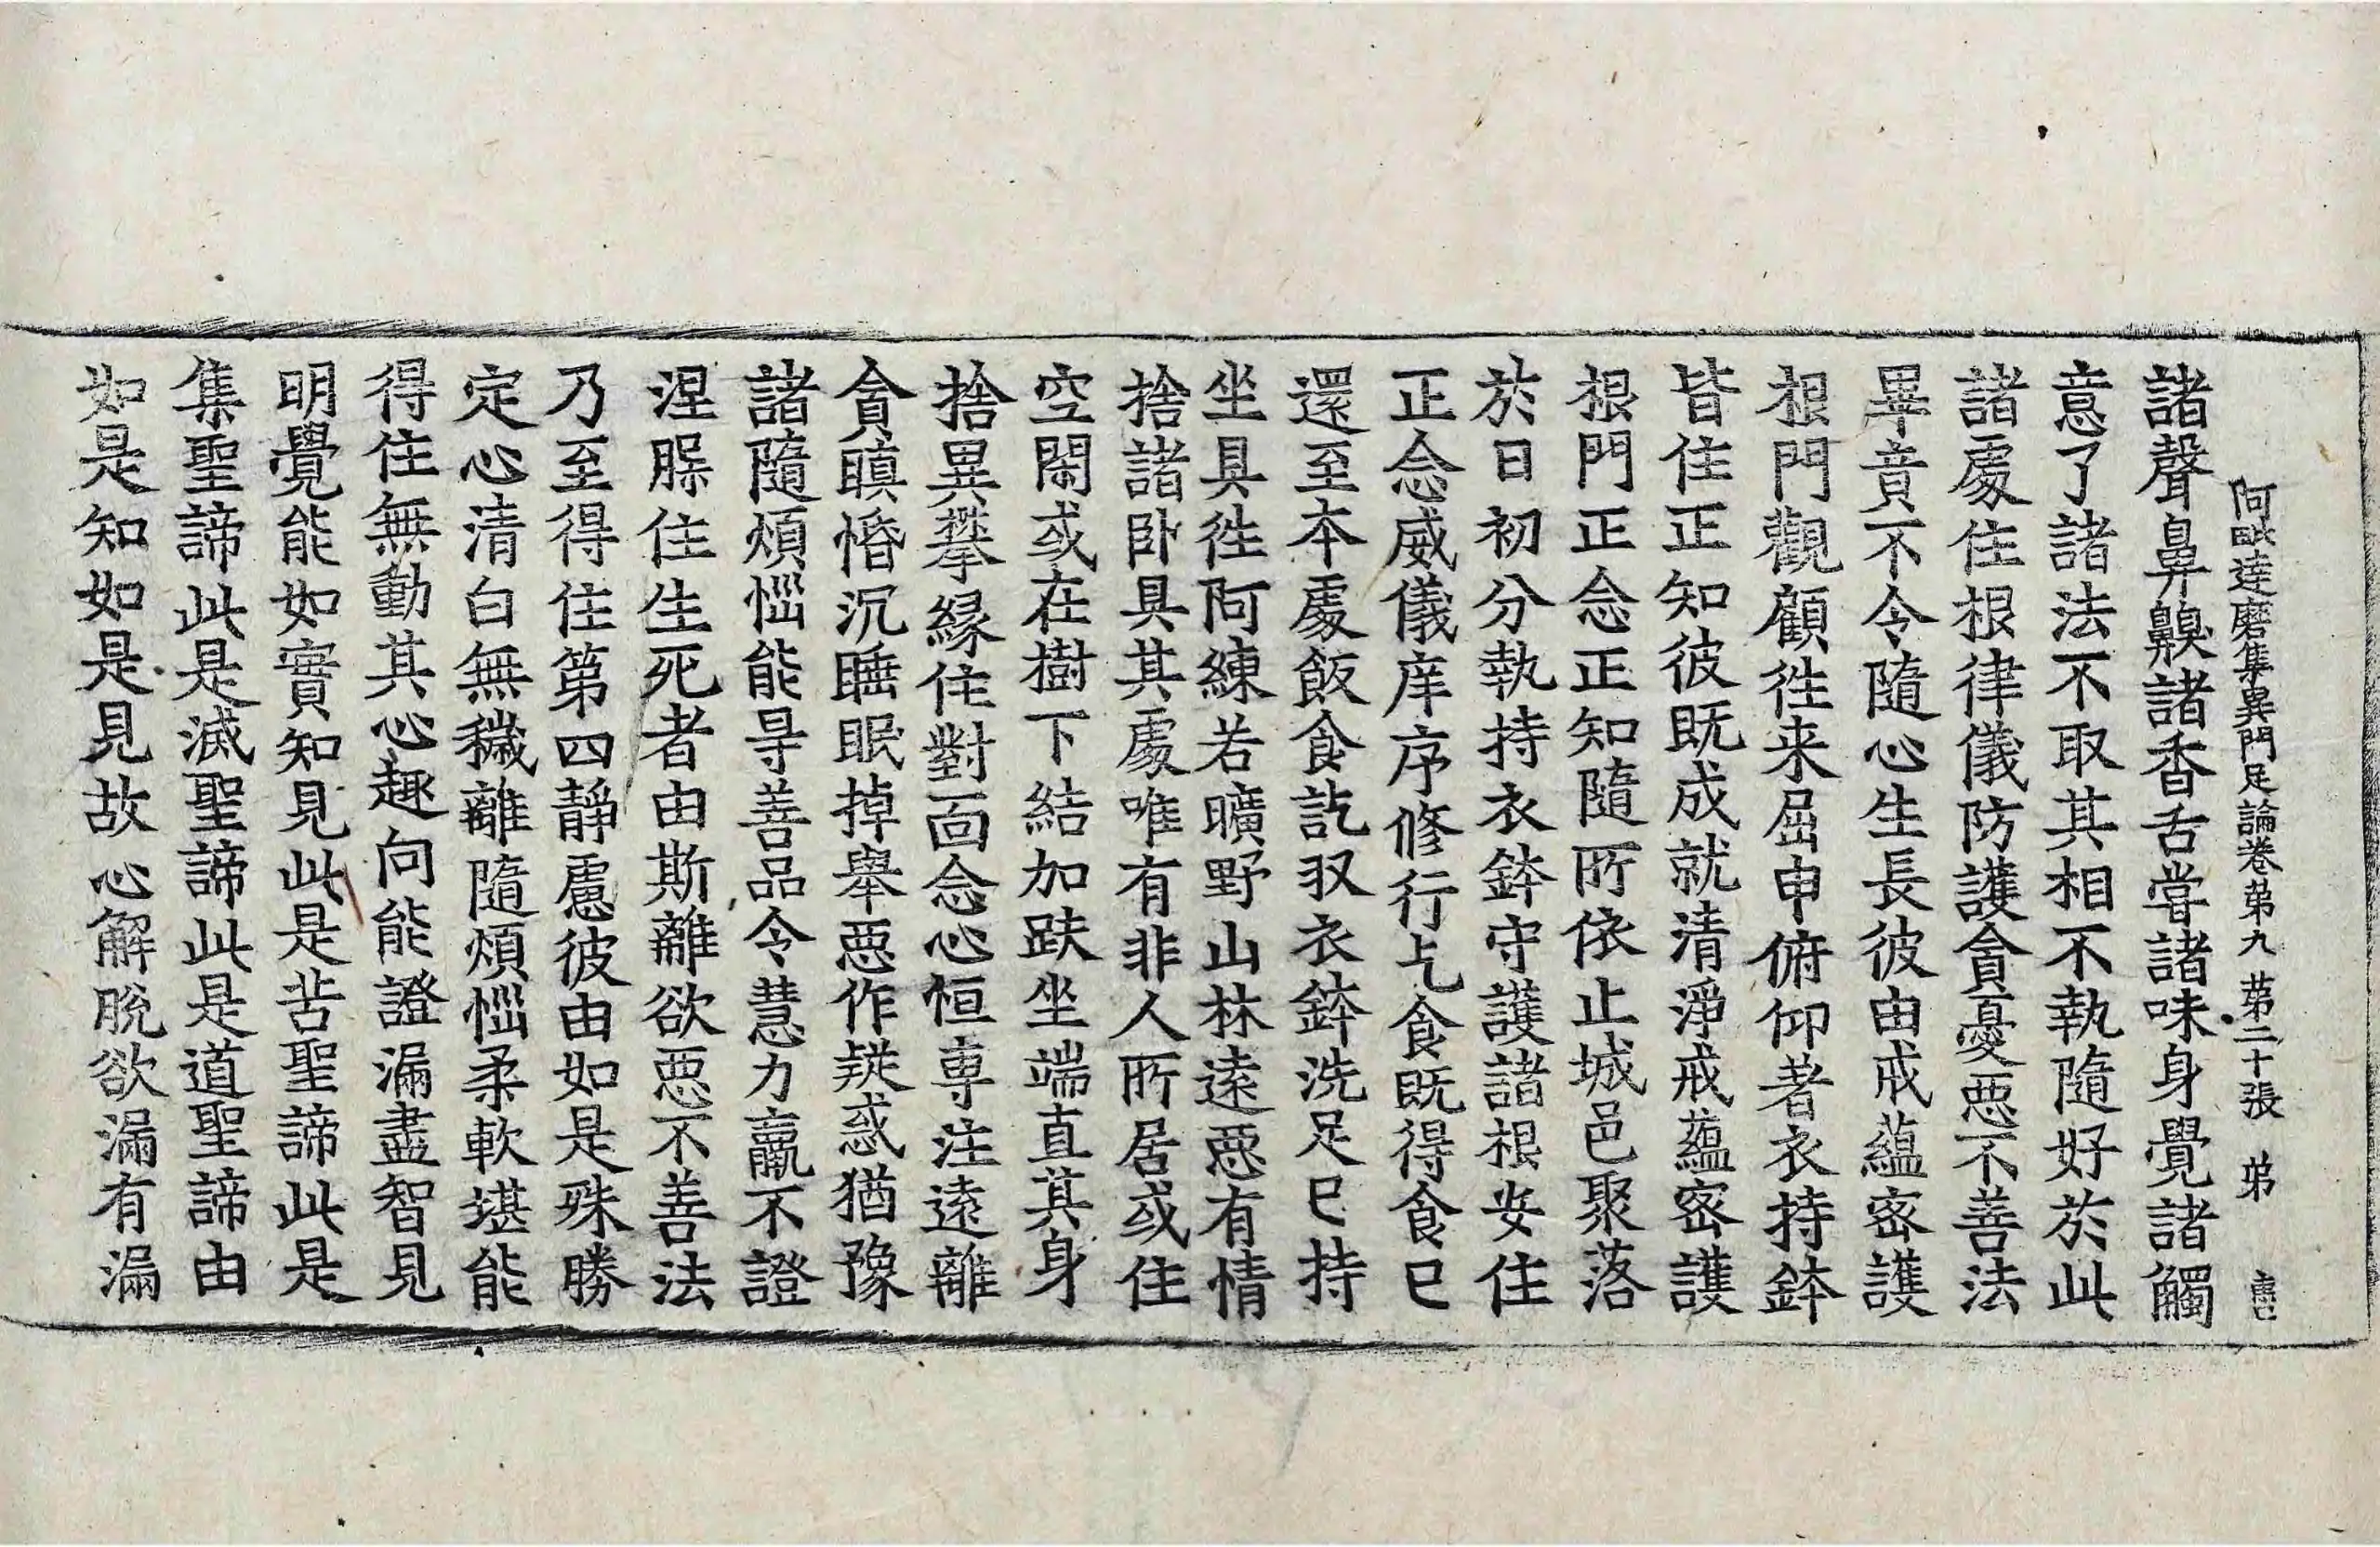 阿毗達磨集異門足論卷第九 第二十張 弟
諸聲鼻齅諸香舌嘗諸味身覺諸觸
意了諸法不取其相不執隨好於此
諸處住根律儀防護貪憂惡不善法
畢竟不令隨心生長彼由戒蘊密護
根門觀顧往来屈申俯仰著衣持鉢
皆住正知彼既成就清淨戒蘊密護
根門正念正知隨所依止城邑聚落
於日初分執持衣鉢守護諸根安住
正念威儀庠序修行乞食既得食已
還至本處飯食訖収衣鉢洗足已持
坐具徃阿練若曠野山林遠惡有情
捨諸卧具其處唯有非人所居或住
空閑或在樹下結加趺坐端直其身
捨異攀緣住對面念心恒專注遠離
貪瞋惛沉睡眠掉舉惡作疑惑猶豫
諸隨煩惱能㝵善品令慧力羸不證
涅槃住生死者由斯離欲惡不善法
乃至得住第四靜慮彼由如是殊勝
定心清白無穢離隨煩惱柔軟堪能
得住無動其心趣向能證漏盡智見
明覺能如實知見此是苦聖諦此是
集聖諦此是滅聖諦此是道聖諦由
如是知如是見故心解脫欲漏有漏